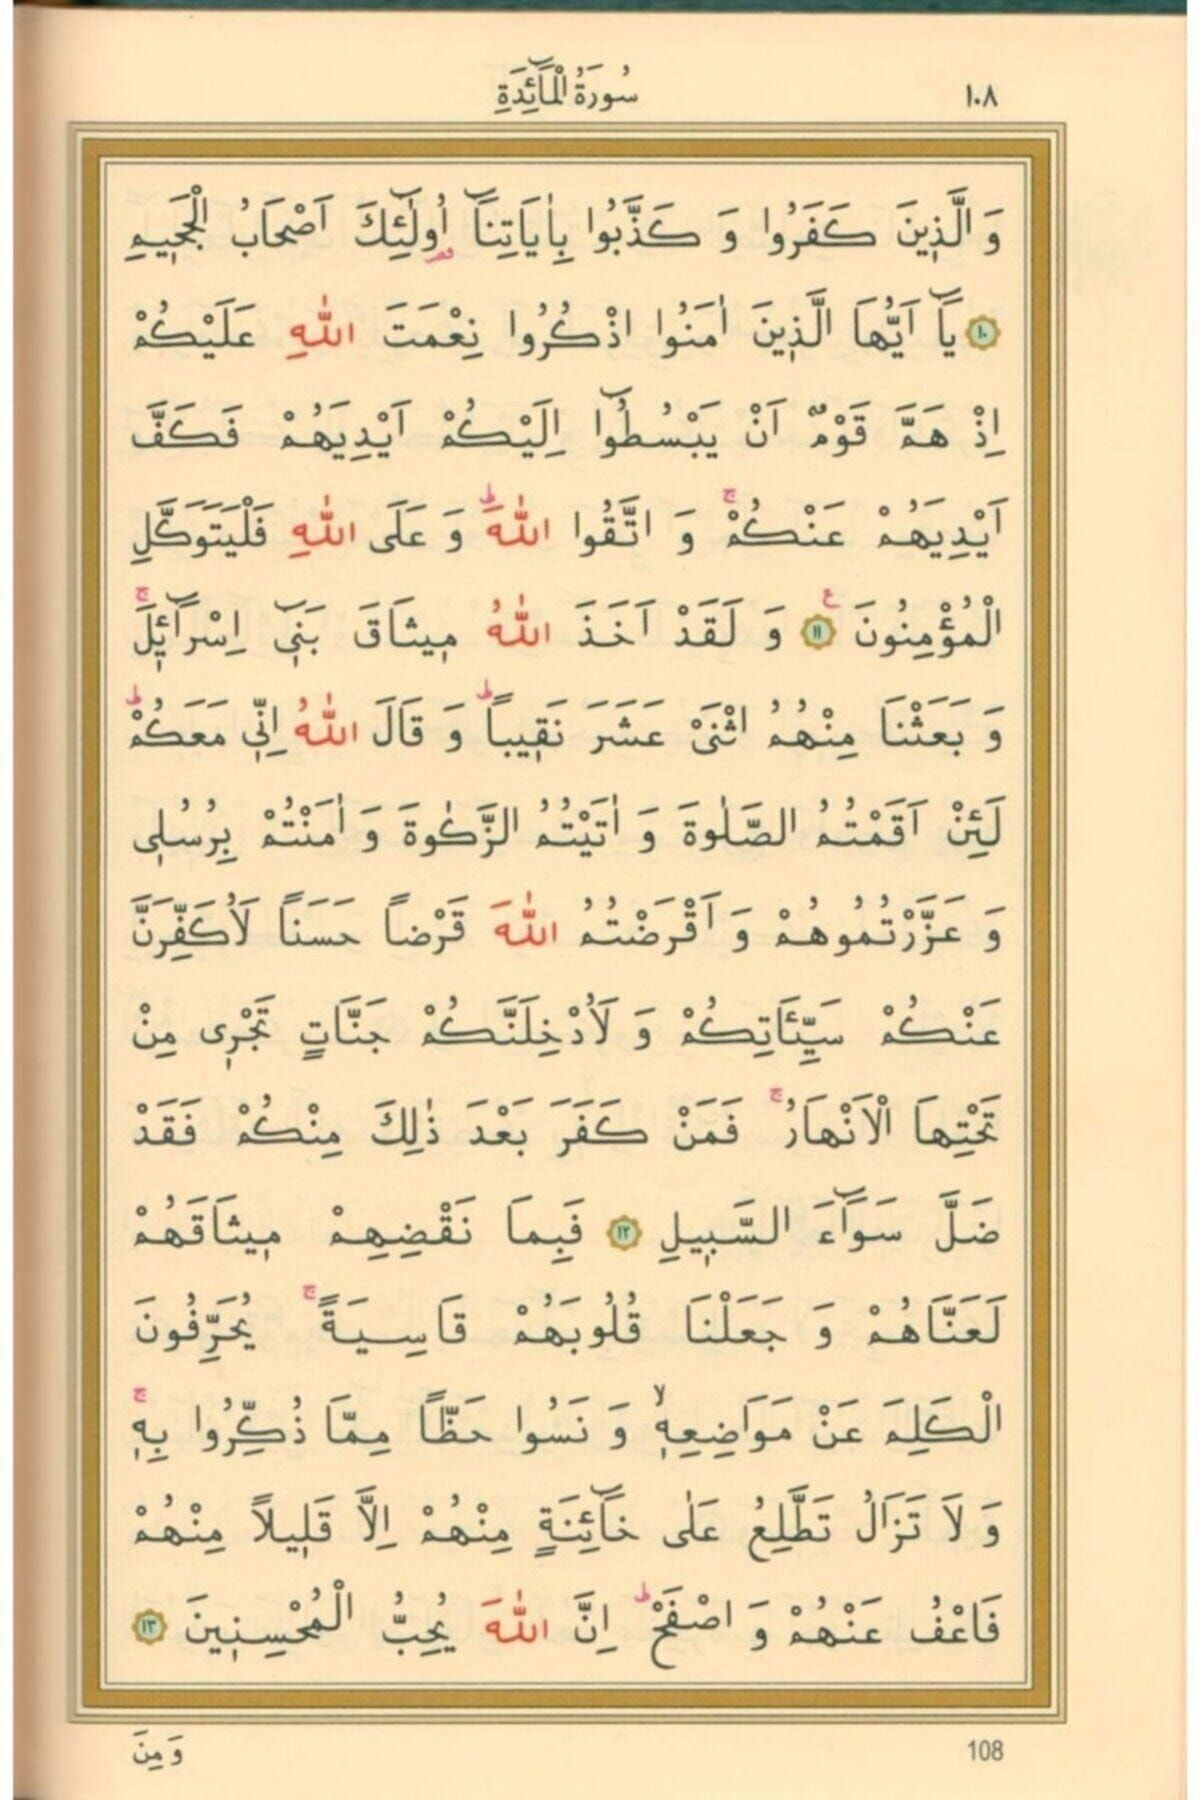 ١٠٨ سُورَةُ الْمَٓائِدَةِ
وَ الَّذ۪ينَ كَفَرُوا وَ كَذَّبُوا بِاٰيَاتِنَٓا اُو۬لٰٓئِكَ اَصْحَابُ الْجَح۪يمِ
﴿١٠﴾ يَٓا اَيُّهَا الَّذ۪ينَ اٰمَنُوا اذْكُرُوا نِعْمَتَ اللّٰهِ عَلَيْكُمْ
اِذْ هَمَّ قَوْمٌ اَنْ يَبْسُطُٓوا اِلَيْكُمْ اَيْدِيَهُمْ فَكَفَّ
اَيْدِيَهُمْ عَنْكُمْۚ وَ اتَّقُوا اللّٰهَۜ وَ عَلَى اللّٰهِ فَلْيَتَوَكَّلِ
الْمُؤْمِنُونَ ﴿١١﴾ع وَ لَقَدْ اَخَذَ اللّٰهُ م۪يثَاقَ بَن۪ٓي اِسْرَٓائ۪لَۚ
وَ بَعَثْنَا مِنْهُمُ اثْنَيْ عَشَرَ نَق۪يباًۜ وَ قَالَ اللّٰهُ اِنّ۪ي مَعَكُمْۜ
لَئِنْ اَقَمْتُمُ الصَّلٰوةَ وَ اٰتَيْتُمُ الزَّكٰوةَ وَ اٰمَنْتُمْ بِرُسُل۪ي
وَ عَزَّرْتُمُوهُمْ وَ اَقْرَضْتُمُ اللّٰهَ قَرْضاً حَسَناً لَاُكَفِّرَنَّ
عَنْكُمْ سَيِّـَٔاتِكُمْ وَ لَاُدْخِلَنَّكُمْ جَنَّاتٍ تَجْر۪ي مِنْ
تَحْتِهَا الْاَنْهَارُۚ فَمَنْ كَفَرَ بَعْدَ ذٰلِكَ مِنْكُمْ فَقَدْ
ضَلَّ سَوَٓاءَ السَّب۪يلِ ﴿١٢﴾ فَبِمَا نَقْضِهِمْ م۪يثَاقَهُمْ
لَعَنَّاهُمْ وَ جَعَلْنَا قُلُوبَهُمْ قَاسِيَةًۚ يُحَرِّفُونَ
الْكَلِمَ عَنْ مَوَاضِعِه۪ۙ وَ نَسُوا حَظّاً مِمَّا ذُكِّرُوا بِه۪ۚ
وَ لَا تَزَالُ تَطَّلِعُ عَلٰى خَٓائِنَةٍ مِنْهُمْ اِلَّا قَل۪يلاً مِنْهُمْ
فَاعْفُ عَنْهُمْ وَ اصْفَحْۜ اِنَّ اللّٰهَ يُحِبُّ الْمُحْسِن۪ينَ ﴿١٣﴾
108 وَ مِنَ